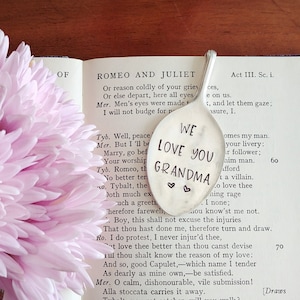 OF ROMEO AND JULIET Act III. Sc. i.
Or reason coldly of your
Or else depart, here all
Mer. Men's eyes were made and let them gaze;
I will not budge for no I.
Tyb. Well, peace comes my man.
Mer. But I'll be your livery:
Marry, go follower;
Your worship 60
Tyb. Romeo, t afford
No better a villain.
Tybalt, the to love thee
rage
such a greeti I none;
herefore know'st me not.
Boy, this shall not excuse the injuries
That thou hast done me, therefore turn and draw.
Ro. I do protest, I never injur'd thee,
love thee better than thou canst devise 70
thou shalt know the reason of my love:
And so, good Capulet,—which name I tender
As dearly as mine own,—be satisfied.
Mer. O calm, dishonourable, vile submission!
Alla stoccata carries it away. [Draws
WE
LOVE YOU
GRANDMA